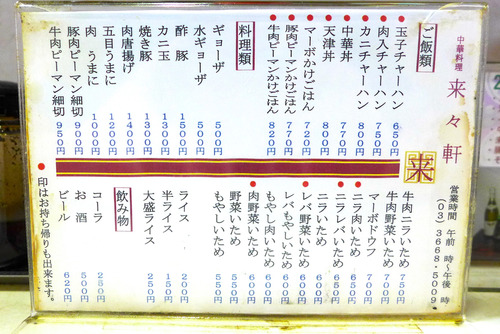 中華料理 来々軒
営業時間 午前 〜 午後 時
(03) 3668-5009
来
ご飯類
●玉子チャーハン 650円
●肉入チャーハン 750円
●カニチャーハン 800円
中華丼 800円
天津丼 800円
●マーボかけごはん 720円
●豚肉ピーマンかけごはん 770円
●牛肉ピーマンかけごはん 820円
料理類
ギョーザ 500円
水ギョーザ 500円
酢豚 1500円
カニ玉 1300円
焼き豚 1300円
肉唐揚げ 1400円
五目うまに 1200円
肉うまに 1000円
豚肉ピーマン細切 900円
牛肉ピーマン細切 950円
牛肉ニラいため 750円
牛肉野菜いため 700円
マーボードウフ 700円
●ニラ肉いため 650円
●ニラレバいため 650円
ニラいため 600円
●レバ野菜いため 600円
レバもやしいため 600円
もやし肉いため 600円
●肉野菜いため 600円
野菜いため
もやしいため
ライス 200円
半ライス 150円
大盛ライス 250円
飲み物
コーラ 250円
お酒 500円
ビール 620円
●印はお持ち帰りも出来ます。